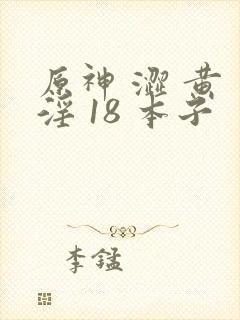 原神 澀 黄
淫 18 本子
李錳